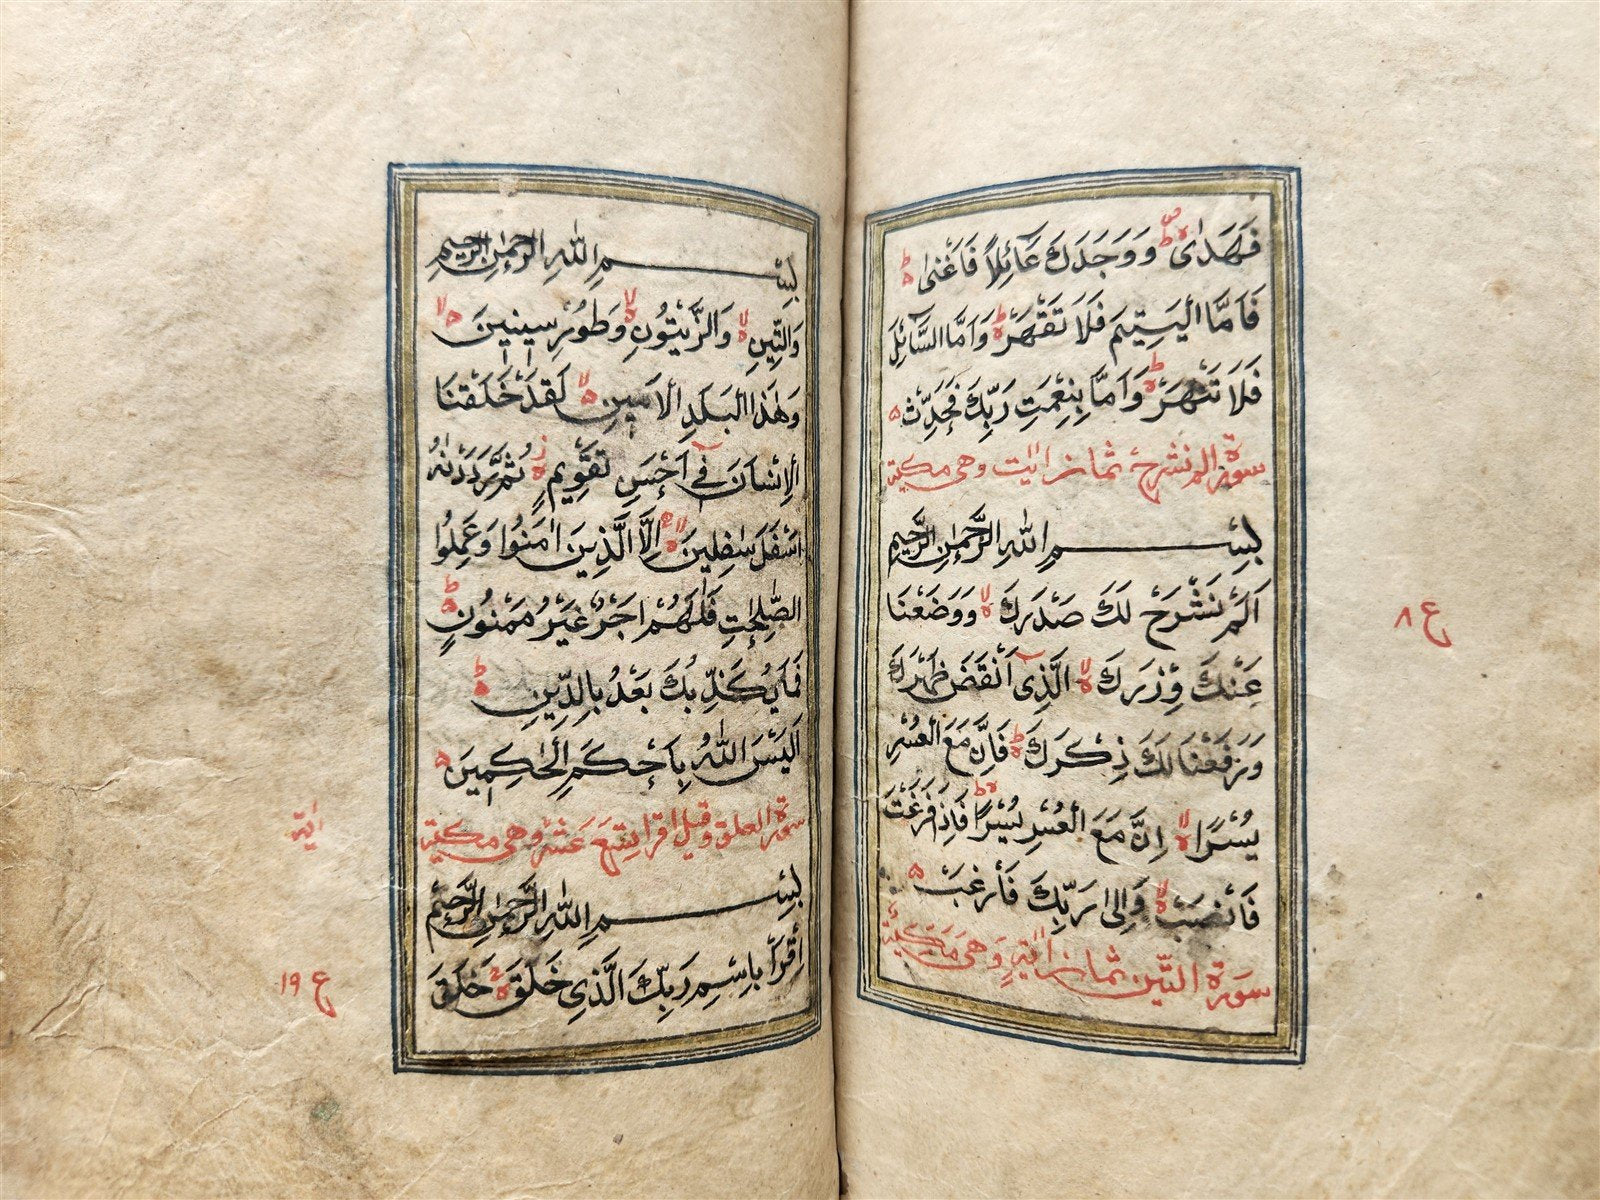 فَهَدٰى ۪ وَوَجَدَكَ عَائِلاً فَاَغْنٰى
فَاَمَّا الْيَتِيمَ فَلَا تَقْهَرْ وَاَمَّا السَّآئِلَ
فَلَا تَنْهَرْ وَاَمَّا بِنِعْمَتِ رَبِّكَ فَحَدِّثْ
سورة الم نشرح ثمان ايات وهى مكية
بِسْمِ اللّٰهِ الرَّحْمٰنِ الرَّحِيمِ
اَلَمْ نَشْرَحْ لَكَ صَدْرَكَ وَوَضَعْنَا
عَنْكَ وِزْرَكَ الَّذِىٓ اَنْقَضَ ظَهْرَكَ
وَرَفَعْنَا لَكَ ذِكْرَكَ فَاِنَّ مَعَ الْعُسْرِ
يُسْرًا اِنَّ مَعَ الْعُسْرِ يُسْرًا فَاِذَا فَرَغْتَ
فَانْصَبْ وَاِلٰى رَبِّكَ فَارْغَبْ
سورة التين ثمان اية وهى مكية
ع ٨
بِسْمِ اللّٰهِ الرَّحْمٰنِ الرَّحِيمِ
وَالتِّينِ وَالزَّيْتُونِ وَطُورِ سِينِينَ
وَهٰذَا الْبَلَدِ الْاَمِينِ لَقَدْ خَلَقْنَا
الْاِنْسَانَ فِىٓ اَحْسَنِ تَقْوِيمٍ ثُمَّ رَدَدْنٰهُ
اَسْفَلَ سٰفِلِينَ اِلَّا الَّذِينَ اٰمَنُوا وَعَمِلُوا
الصّٰلِحٰتِ فَلَهُمْ اَجْرٌ غَيْرُ مَمْنُونٍ
فَمَا يُكَذِّبُكَ بَعْدُ بِالدِّينِ
اَلَيْسَ اللّٰهُ بِاَحْكَمِ الْحٰكِمِينَ
سورة العلق وقيل اقرا تسع عشر وهى مكية
اية
بِسْمِ اللّٰهِ الرَّحْمٰنِ الرَّحِيمِ
اِقْرَاْ بِاسْمِ رَبِّكَ الَّذِى خَلَقَ خَلَقَ
ع ١٩